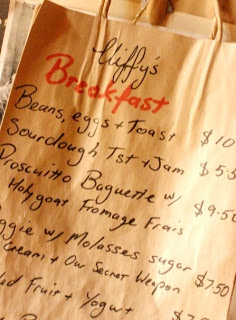 Cliffy's
Breakfast
Beans, eggs + Toast $10
Sourdough Tst + Jam $5.5
Prosciutto Baguette w/
Holygoat Fromage Frais $9.50
ggie w/ Molasses sugar
Cream + Our Secret Weapon $7.50
Fruit + Yogurt